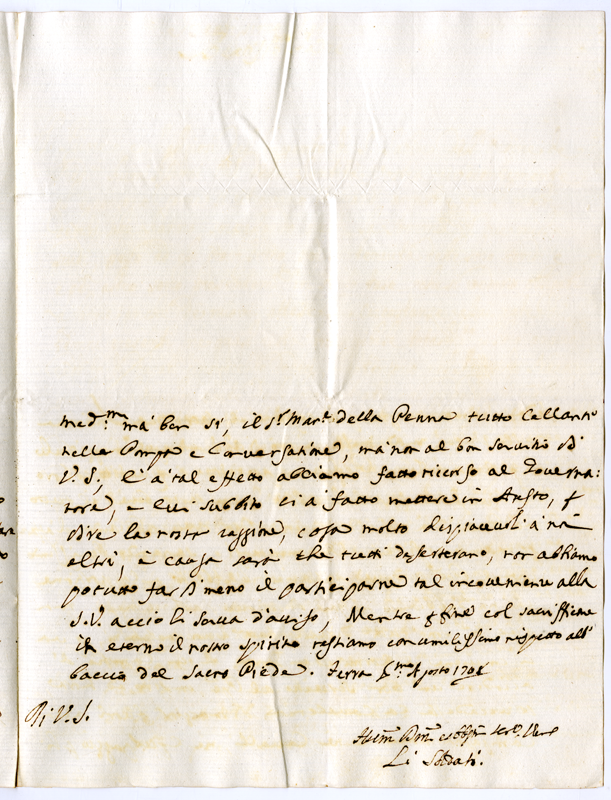 med.mi mà ben sì, il S.r Mar.e della Penna tutto
nelle Pompe e Conversatione, mà non al bon servitio di
V. S., E à tal effetto abbiamo fatto ricorso al Governa:
tore, e lui subbito ci à fatto mettere in
dire la nostra raggione, cosa molto à noi
altri, è causa sarà che tutti deserterano, non abbiamo
potuto far di meno il participarne tal inconveniente alla
S. V. acciò li serva d'aviso, Mentre col sacrificare
in eterno il nostro spirito restiamo con umilissimo rispetto all'
baccio del Sacro Piede. Agosto
Di V. S.
Li Soldati.